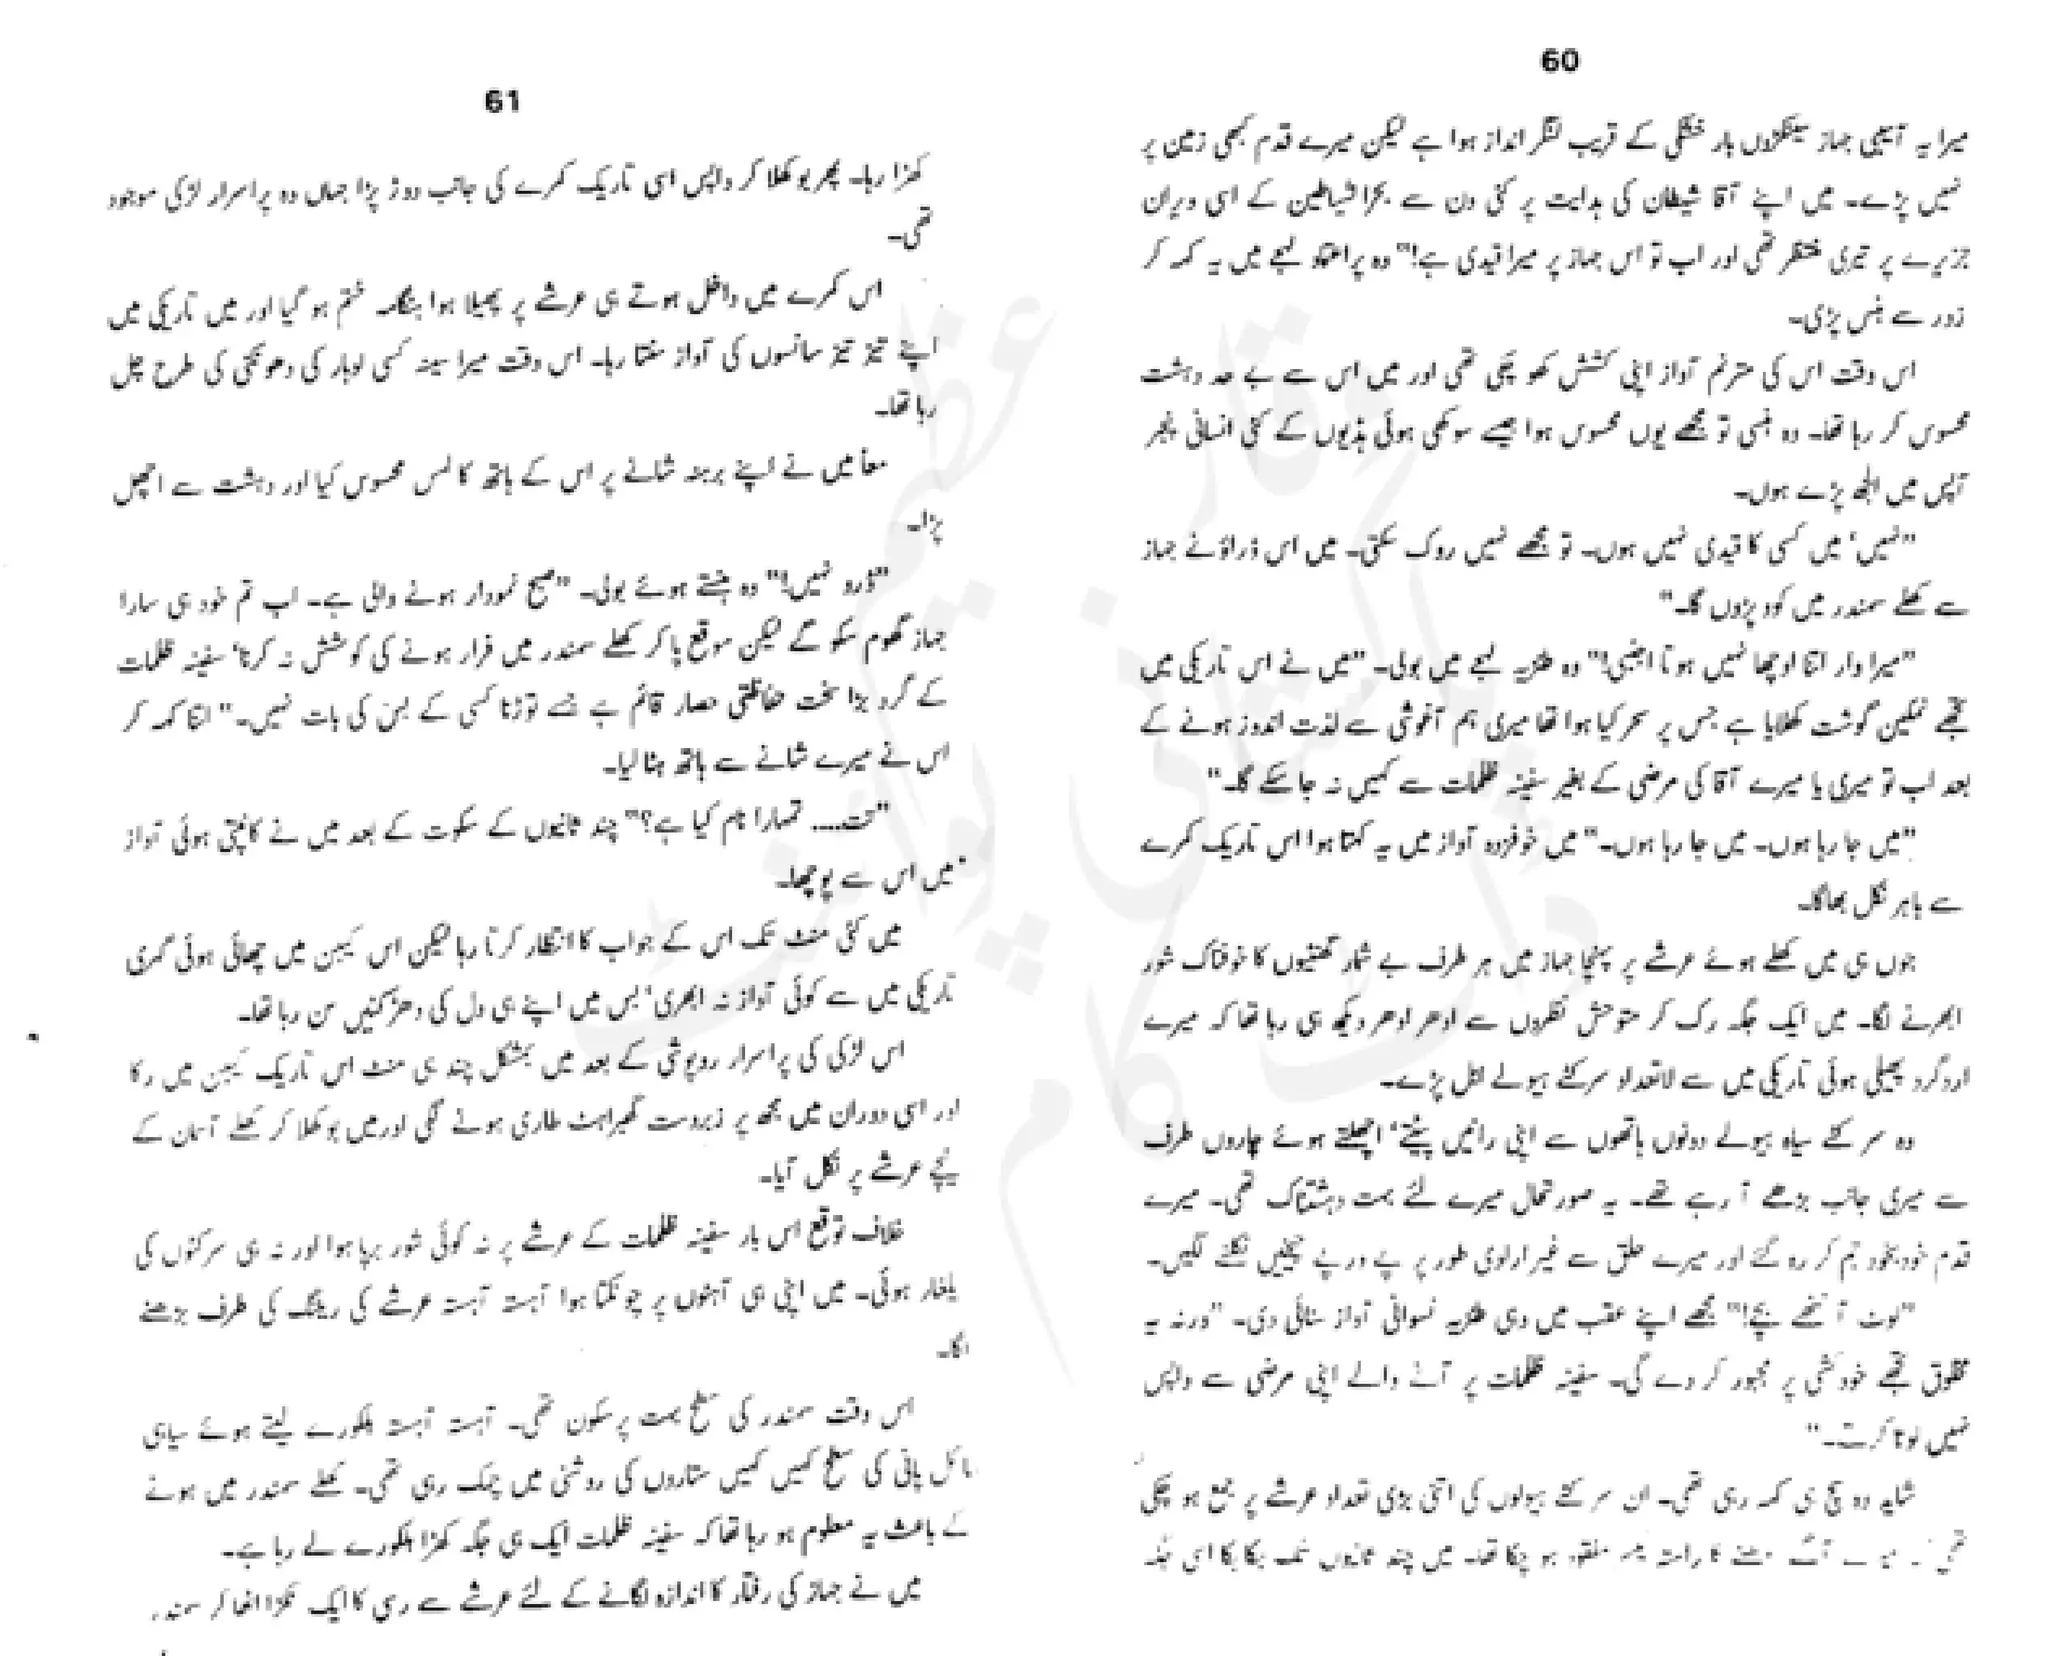 60
میرا یہ آسیبی جہاز سینکڑوں بار خشکی کے قریب لنگر انداز ہوا ہے لیکن میرے قدم کبھی زمین پر
نہیں پڑے۔ میں اپنے آقا شیطان کی ہدایت پر کئی دن سے بحرالشیاطین کے اسی ویران
جزیرے پر تیری منتظر تھی اور اب تو اس جہاز پر میرا قیدی ہے!" وہ پراعتماد لہجے میں یہ کہہ کر
زور سے ہنس پڑی۔
اس وقت اس کی مترنم آواز اپنی کشش کھو چکی تھی اور میں اس سے بے حد دہشت
محسوس کر رہا تھا۔ وہ ہنسی تو مجھے یوں محسوس ہوا جیسے سوکھی ہوئی ہڈیوں کے کئی انسانی پنجر
آپس میں الجھ پڑے ہوں۔
"نہیں' میں کسی کا قیدی نہیں ہوں۔ تو مجھے نہیں روک سکتی۔ میں اس ڈراؤنے جہاز
سے کھلے سمندر میں کود پڑوں گا۔"
"میرا وار اتنا اوچھا نہیں ہوتا اجنبی!" وہ طنزیہ لہجے میں بولی۔ "میں نے اس تاریکی میں
تجھے نمکین گوشت کھلایا ہے جس پر سحر کیا ہوا تھا میری ہم آغوشی سے لذت اندوز ہونے کے
بعد اب تو میری یا میرے آقا کی مرضی کے بغیر سفینہ ظلمات سے کہیں نہ جا سکے گا۔"
"میں جا رہا ہوں۔ میں جا رہا ہوں۔" میں خوفزدہ آواز میں یہ کہتا ہوا اس تاریک کمرے
سے باہر نکل بھاگا۔
جوں ہی میں کھلے ہوئے عرشے پر پہنچا جہاز میں ہر طرف بے شمار گھنٹیوں کا خوفناک شور
ابھرنے لگا۔ میں ایک جگہ رک کر متوحش نظروں سے ادھر ادھر دیکھ ہی رہا تھا کہ میرے
اردگرد پھیلی ہوئی تاریکی میں سے لاتعداد سرکٹے ہیولے ابل پڑے۔
وہ سر کٹے سیاہ ہیولے دونوں ہاتھوں سے اپنی رانیں پیٹتے' اچھلتے ہوئے چاروں طرف
سے میری جانب بڑھے آ رہے تھے۔ یہ صورتحال میرے لئے بہت دہشتناک تھی۔ میرے
قدم خودبخود جم کر رہ گئے اور میرے حلق سے غیر ارادی طور پر پے در پے چیخیں نکلنے لگیں۔
"لوٹ آ ننھے بچے!" مجھے اپنے عقب میں وہی طنزیہ نسوانی آواز سنائی دی۔ "ورنہ یہ
مخلوق تجھے خودکشی پر مجبور کر دے گی۔ سفینہ ظلمات پر آنے والے اپنی مرضی سے واپس
نہیں لوٹا کرتے۔"
شاید وہ سچ ہی کہہ رہی تھی۔ ان سر کٹے ہیولوں کی اتنی بڑی تعداد عرشے پر جمع ہو چکی
تھی کہ میرے آگے بڑھنے کا راستہ مفقود ہو چکا تھا۔ میں چند ثانیوں تک ہکا بکا اسی جگہ
61
کھڑا رہا۔ پھر بوکھلا کر واپس اسی تاریک کمرے کی جانب دوڑ پڑا جہاں وہ پراسرار لڑکی موجود
تھی۔
اس کمرے میں داخل ہوتے ہی عرشے پر پھیلا ہوا ہنگامہ ختم ہو گیا اور میں تاریکی میں
اپنے تیز تیز سانسوں کی آواز سنتا رہا۔ اس وقت میرا سینہ کسی لوہار کی دھونکنی کی طرح چل
رہا تھا۔
معاً میں نے اپنے برہنہ شانے پر اس کے ہاتھ کا لمس محسوس کیا اور دہشت سے اچھل
پڑا۔
"ڈرو نہیں!" وہ ہنستے ہوئے بولی۔ "صبح نمودار ہونے والی ہے۔ اب تم خود ہی سارا
جہاز گھوم سکو گے لیکن موقع پا کر کھلے سمندر میں فرار ہونے کی کوشش نہ کرنا' سفینہ ظلمات
کے گرد بڑا سخت حفاظتی حصار قائم ہے جسے توڑنا کسی کے بس کی بات نہیں۔" اتنا کہہ کر
اس نے میرے شانے سے ہاتھ ہٹا لیا۔
"تت.... تمہارا نام کیا ہے؟" چند ثانیوں کے سکوت کے بعد میں نے کانپتی ہوئی آواز
میں اس سے پوچھا۔
میں کئی منٹ تک اس کے جواب کا انتظار کرتا رہا لیکن اس کیبن میں چھائی ہوئی گہری
تاریکی میں سے کوئی آواز نہ ابھری' بس میں اپنے ہی دل کی دھڑکنیں سن رہا تھا۔
اس لڑکی کی پراسرار روپوشی کے بعد میں بمشکل چند ہی منٹ اس تاریک کیبن میں رکا
اور اسی دوران میں مجھ پر زبردست گھبراہٹ طاری ہونے لگی اور میں بوکھلا کر کھلے آسمان کے
نیچے عرشے پر نکل آیا۔
خلاف توقع اس بار سفینہ ظلمات کے عرشے پر نہ کوئی شور برپا ہوا اور نہ ہی سرکٹوں کی
یلغار ہوئی۔ میں اپنی ہی آہٹوں پر چونکتا ہوا آہستہ آہستہ عرشے کی ریلنگ کی طرف بڑھنے
لگا۔
اس وقت سمندر کی سطح بہت پرسکون تھی۔ آہستہ آہستہ ہلکورے لیتے ہوئے سیاہی
مائل پانی کی سطح کہیں کہیں ستاروں کی روشنی میں چمک رہی تھی۔ کھلے سمندر میں ہونے
کے باعث یہ معلوم ہو رہا تھا کہ سفینہ ظلمات ایک ہی جگہ کھڑا ہلکورے لے رہا ہے۔
میں نے جہاز کی رفتار کا اندازہ لگانے کے لئے عرشے سے رسی کا ایک ٹکڑا اٹھا کر سمندر
قار عظیم
پاکستانی پوائنٹ
ڈاٹ کام